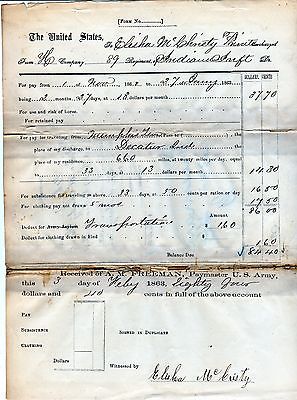 [FORM No.]
The United States,
To Elisha McChristy Private
From H Company 89 Regiment Indiana Inft Dr.
DOLLARS. CENTS
For pay from 1 of Nov 1862 to 27 of Jany 1863
being 2 months 27 days, at 13 dollars per month 37.70
For use and risk of horse.
For retained pay
For pay for traveling from Memphis Tenn
place of my discharge, to Decatur Ind
place of my residence, 660 miles, at twenty miles per day, equal
to 33 days at 13 dollars per month 14.30
For subsistence for traveling as above 33 days, at 50 cents per ration or day 16.50
For clothing not drawn 5 mos 17.50
Amount 86.00
Deduct for Army Asylum Transportation $ 1.60
Deduct for clothing drawn in kind
1.60
Balance Due 84.40
Received of A. M. FREEMAN, Paymaster U. S. Army,
this 3 day of Feby 1863, Eighty four
dollars and 40 cents in full of the above account
PAY
SUBSISTENCE
CLOTHING
Dollars
SIGNED IN DUPLICATE
Witnessed by
Elisha McCristy